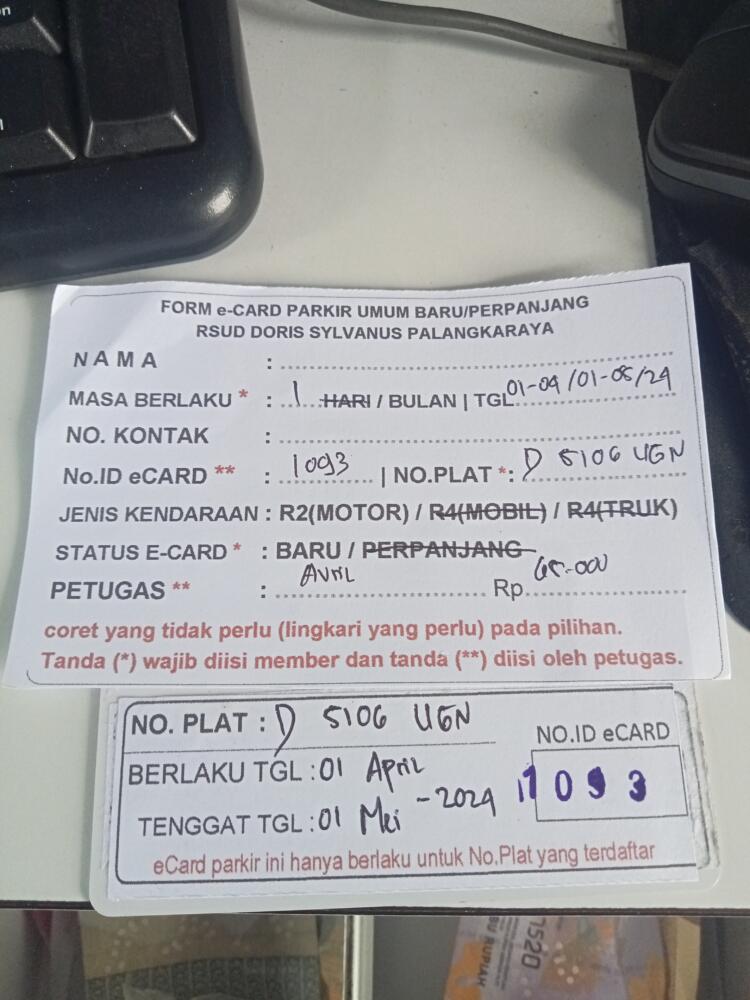 FORM e-CARD PARKIR UMUM BARU/PERPANJANG
RSUD DORIS SYLVANUS PALANGKARAYA
NAMA :
MASA BERLAKU * : 1 HARI / BULAN | TGL 01-04/01-05/24
NO. KONTAK :
No.ID eCARD ** : 1093 | NO.PLAT *: D 5106 UGN
JENIS KENDARAAN : R2(MOTOR) / R4(MOBIL) / R4(TRUK)
STATUS E-CARD * : BARU / PERPANJANG
PETUGAS ** : AVRIL Rp
coret yang tidak perlu (lingkari yang perlu) pada pilihan.
Tanda (*) wajib diisi member dan tanda (**) diisi oleh petugas.
NO. PLAT : D 5106 UGN
NO.ID eCARD
BERLAKU TGL : 01 April
1093
TENGGAT TGL : 01 Mei - 2024
eCard parkir ini hanya berlaku untuk No.Plat yang terdaftar
BU RUPIAH